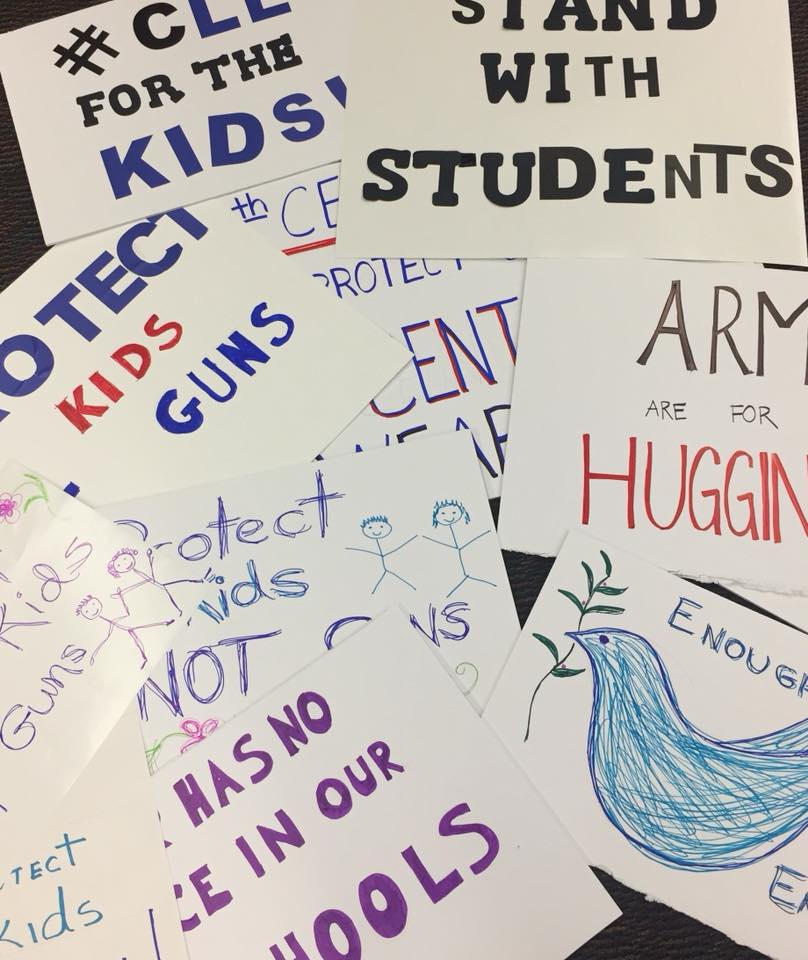 #CLE
FOR THE
KIDS!
STAND
WITH
STUDENTS
th CE
PROTECT
CENT
YEAR
OTECT
KIDS
GUNS
ARM
ARE FOR
HUGGIN
Protect
Kids
NOT
NS
Kids
Guns
ENOUGH
EN
HAS NO
CE IN OUR
HOOLS
TECT
Kids